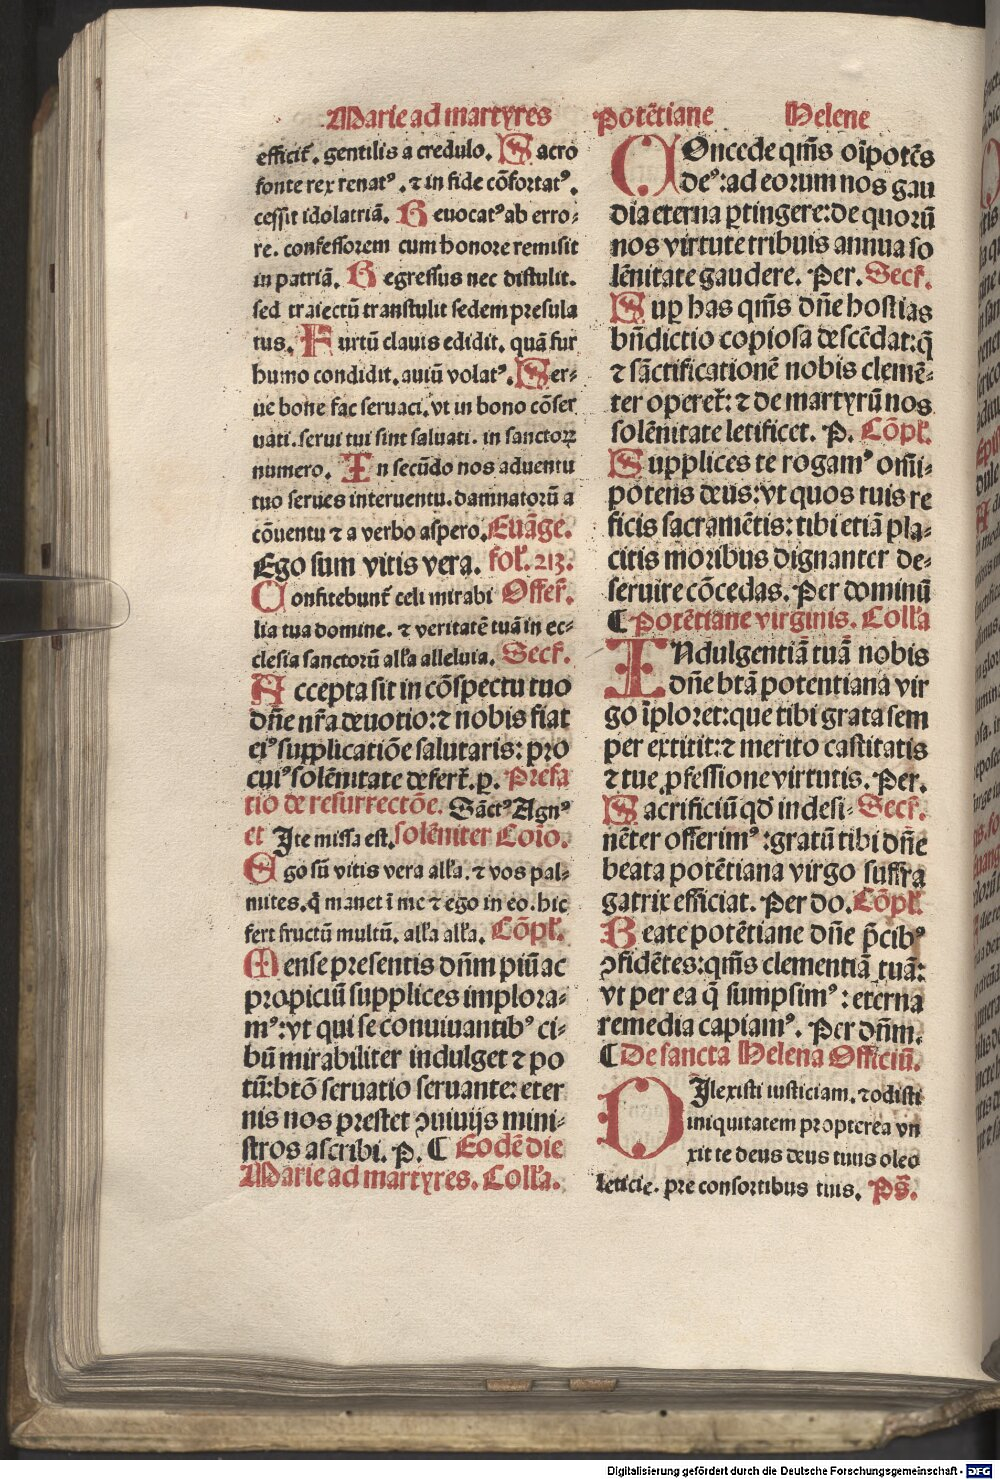 Marie ad martyres
efficit᷑. gentilis a credulo. Sacro
fonte rex renatꝰ. ⁊ in fide cōfortatꝰ.
cessit idolatriā. Reuocatꝰ ab erro-
re. confessorem cum honore remisit
in patriā. Regressus nec distulit.
sed traiectū transtulit sedem presula
tus. Furtū clauis edidit. quā fur
humo condidit. auiū volatꝰ. Ser-
ue bone fac seruaci. vt in bono cōser
uati. serui tui sint saluati. in sanctoꝝ
numero. In secūdo nos aduentu
tuo serues interuentu. damnatorū a
cōuentu ⁊ a verbo aspero. Euāge.
Ego sum vitis vera. fol̓. 213.
Confitebunt᷑ celi mirabi Offer̄.
lia tua domine. ⁊ veritatē tuā in ec-
clesia sanctorū all̓a alleluia. Secr̄.
Accepta sit in cōspectu tuo
dn̄e nr̄a deuotio: ⁊ nobis fiat
eiꝰ supplicatiōe salutaris: pro
cuiꝰ solēnitate defert᷑. p. Prefa
tio de resurrectōe. Sāctꝰ Agnꝰ
et Ite missa est. solēniter Cōio.
Ego sū vitis vera all̓a. ⁊ vos pal-
mites. q̄ manet ī me ⁊ ego in eo. hic
fert fructū multū. all̓a all̓a. Cōpl̓.
Mense presentis dn̄m piū ac
propiciū supplices implora-
mꝰ: vt qui se conuiuantibꝰ ci-
bū mirabiliter indulget ⁊ po
tū: btō seruatio seruante: eter
nis nos prestet ꝯuiuijs mini-
stros ascribi. P. ¶ Eodē die
Marie ad martyres. Coll̓a.
Potētiane Helene
COncede qm̄s oīpotēs
deꝰ: ad eorum nos gau
dia eterna ꝑtingere: de quorū
nos virtute tribuis annua so
lēnitate gaudere. Per. Secr̄.
Suꝑ has qm̄s dn̄e hostias
bn̄dictio copiosa descēdat: q̄
⁊ sāctificationē nobis clemē-
ter operet᷑: ⁊ de martyrū nos
solēnitate letificet. P. Cōpl̓.
Supplices te rogamꝰ om̄i-
potens deus: vt quos tuis re
ficis sacramētis: tibi etiā pla-
citis moribus dignanter de-
seruire cōcedas. Per dominū
¶ Potētiane virginis. Coll̓a
INdulgentiā tuā nobis
dn̄e btā potentiana vir
go īploret: que tibi grata sem
per extitit: ⁊ merito castitatis
⁊ tue ꝓfessione virtutis. Per.
Sacrificiū qd̄ indesi- Secr̄.
nēter offerimꝰ: gratū tibi dn̄e
beata potētiana virgo suffra
gatrix efficiat. Per do. Cōpl̓.
Beate potētiane dn̄e p̄cibꝰ
ꝯfidētes: qm̄s clementiā tuā:
vt per ea q̄ sumpsimꝰ: eterna
remedia capiamꝰ. Per dn̄m.
¶ De sancta Helena Officiū.
DIlexisti iusticiam. ⁊ odisti
iniquitatem propterea vn
xit te deus deus tuus oleo
leticie. pre consortibus tuis. Ps̄.
Digitalisierung gefördert durch die Deutsche Forschungsgemeinschaft - DFG